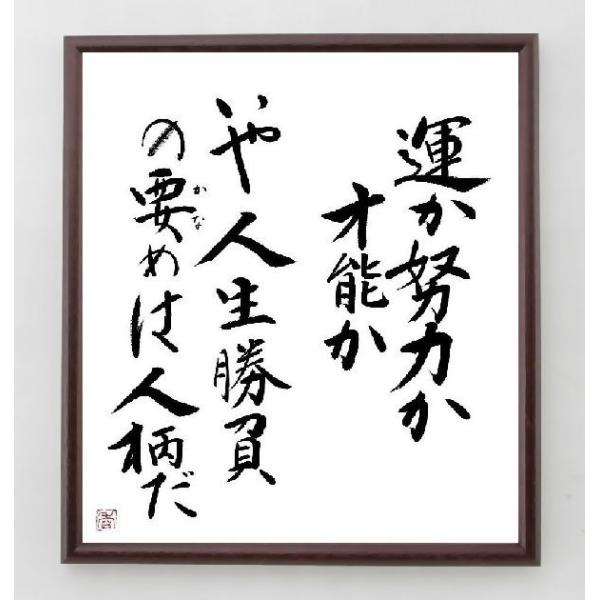 運か努力か
才能か
いや人生勝負
の要めは人柄だ
かな